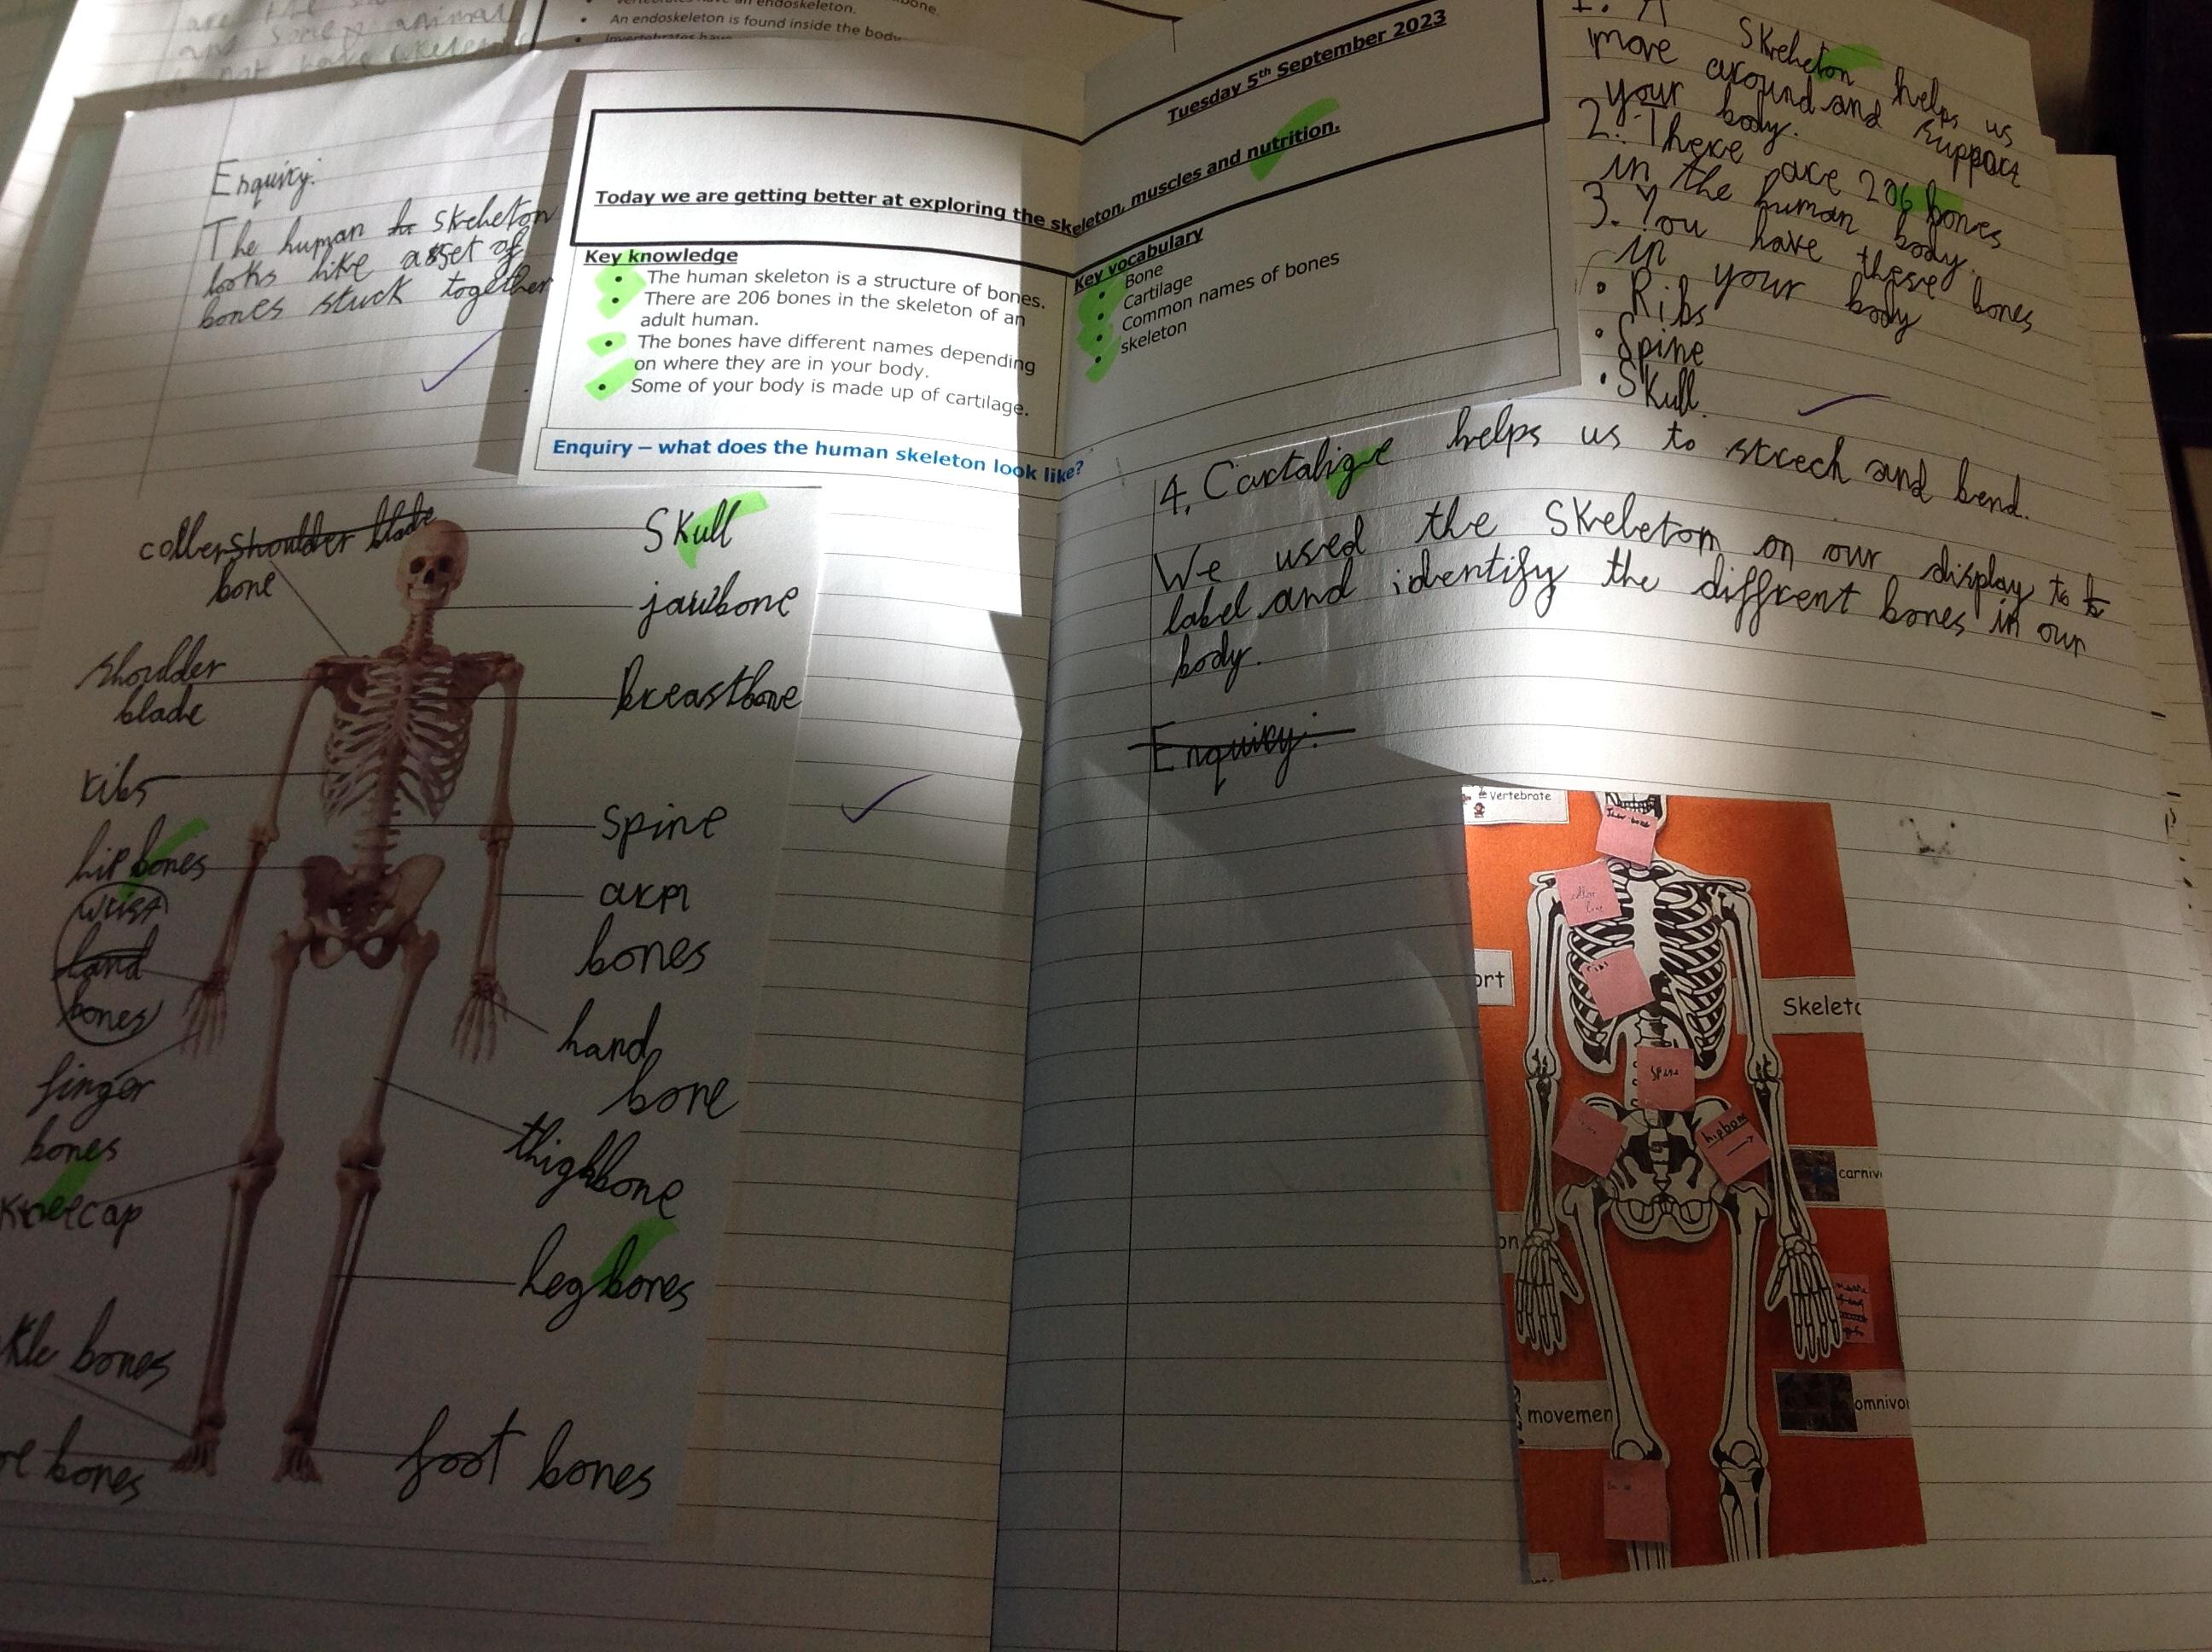 are the
and some animal
not have skeleton
endoskeleton.
An endoskeleton is found inside the body
Invertebrates have
Enquiry:
The human skeleton
looks like a set of
bones stuck together
Tuesday 5th September 2023
Today we are getting better at exploring the skeleton, muscles and nutrition.
Key knowledge
• The human skeleton is a structure of bones.
• There are 206 bones in the skeleton of an
adult human.
• The bones have different names depending
on where they are in your body.
• Some of your body is made up of cartilage.
Key vocabulary
• Bone
• Cartilage
• Common names of bones
• skeleton
Enquiry – what does the human skeleton look like?
coller shoulder blade
bone
shoulder
blade
ribs
hip bones
wrist
hand
bones
finger
bones
Kneecap
kle bones
re bones
Skull
jawbone
breastbone
spine
arm
bones
hand
bone
thighbone
leg bones
foot bones
1. A Skeleton helps us
move around and support
your body.
2. There are 206 bones
in the human body.
3. You have these bones
in your body
• Ribs
• Spine
• Skull.
4. Cartalige helps us to strech and bend.
We used the skeleton on our display to to
label and identify the diffrent bones in our
body.
Enquiry:
vertebrate
ribs
spine
hipbone
ort
Skeleto
carniv
on
movemen
omnivo